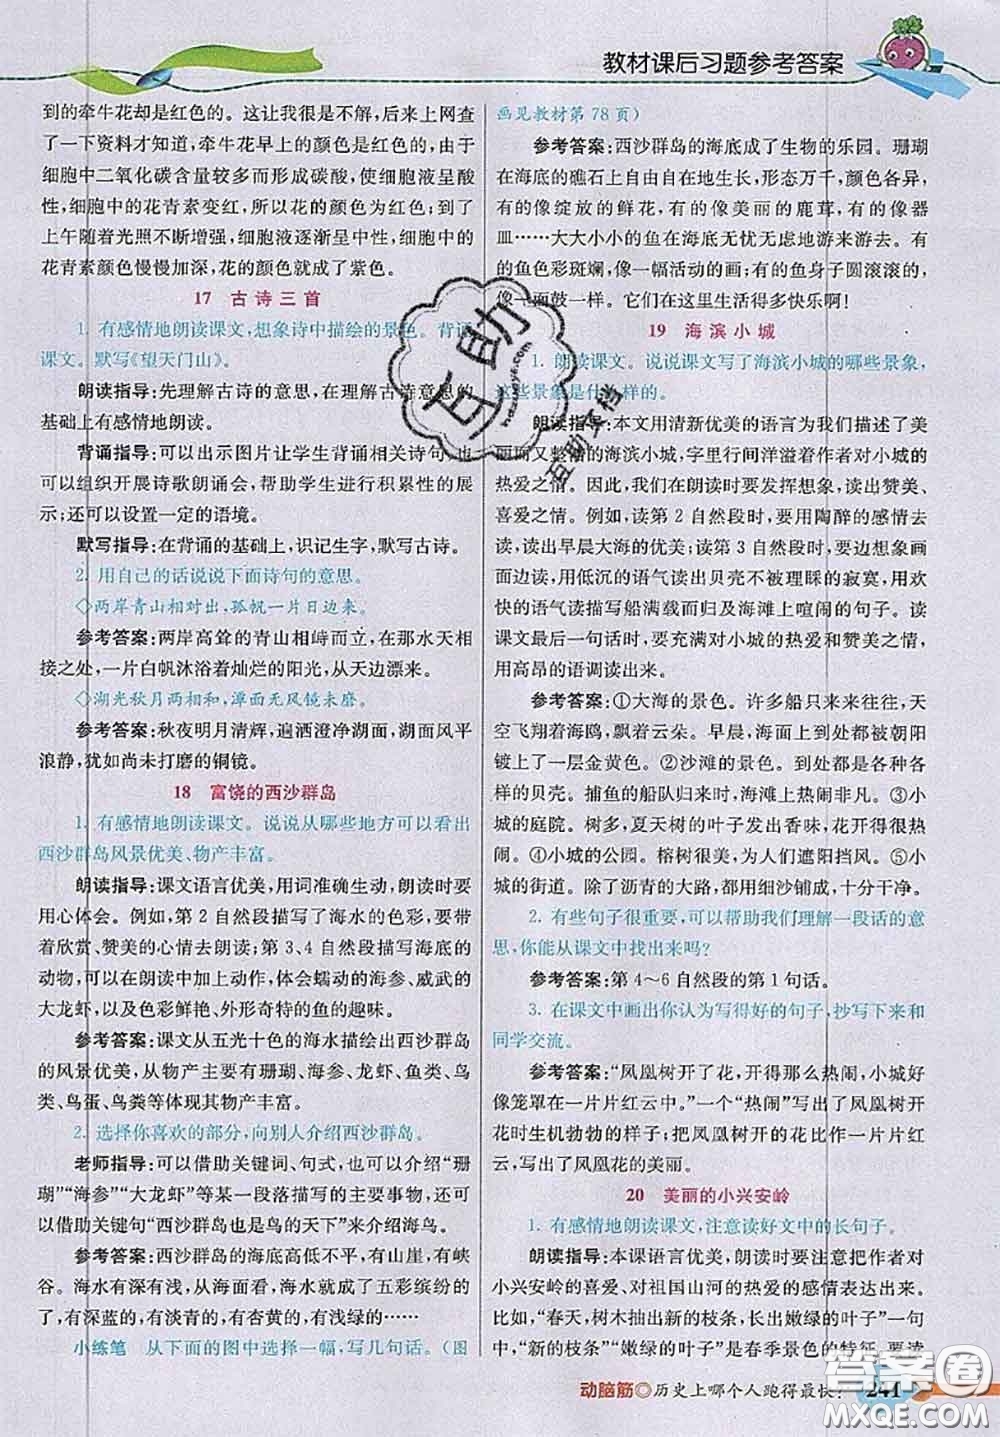 教材课后习题参考答案
到的牵牛花却是红色的。这让我很是不解,后来上网查
了一下资料才知道,牵牛花早上的颜色是红色的,由于
细胞中二氧化碳含量较多而形成了碳酸,使细胞呈酸
性,细胞中的花青素变红,所以花的颜色就成了红色;到了
上午随着光照不断增强,细胞逐渐呈中性,细胞中的
花青素颜色慢慢加深,花的颜色就成了紫色。
17 古诗三首
1. 有感情地朗读课文,想象诗中描绘的景色。背诵
课文。默写《望天门山》。
朗读指导:先理解古诗的意思,在理解古诗意思的
基础上有感情地朗读。
背诵指导:可以出示图片让学生背诵相关诗句,也
可以组织开展诗歌朗诵会,帮助学生进行积累性的展
示;还可以设置一定的语境。
默写指导:在背诵的基础上,识记生字,默写古诗。
2. 用自己的话说说下面诗句的意思。
◇两岸青山相对出,孤帆一片日边来。
参考答案:两岸高耸的青山相峙而立,在那水天相
接之处,一片白帆沐浴着灿烂的阳光,从天边漂来。
◇湖光秋月两相和,潭面无风镜未磨。
参考答案:秋夜明月清辉,遍洒澄净湖面,湖面风平
浪静,犹如尚未打磨的铜镜。
18 富饶的西沙群岛
1. 有感情地朗读课文。说说从哪些地方可以看出
西沙群岛风景优美、物产丰富。
朗读指导:课文语言优美,用词准确生动,朗读时要
用心体会。例如,第 2 自然段描写了海水的色彩,要带
着欣赏、赞美的心情去朗读;第 3、4 自然段描写海底的
动物,可以在朗读中加上动作,体会蠕动的海参、威武的
大龙虾,以及色彩鲜艳、外形奇特的鱼的兴致勃勃的乐趣。
参考答案:课文从五光十色的海水描绘出西沙群岛
的风景优美,从物产主要有珊瑚、海参、龙虾、鱼类、鸟
类、鸟蛋、鸟粪等体现其物产丰富。
2. 选择你喜欢的部分,向别人介绍西沙群岛。
老师指导:可以借助关键词、句式,也可以介绍“珊
瑚”“海参”“大龙虾”等某一段落描写的主要事物,还可
以借助关键句“西沙群岛也是鸟的天下”来介绍海鸟。
参考答案:西沙群岛的海底高低不平,有山崖,有峡
谷。海水有深有浅,从海面看,海水就成了五彩缤纷的
了,有深蓝的,有淡青的,有杏黄的,有浅绿的……
小练笔 从下面的图中选择一幅,写几句话。(图
画见教材第 78 页)
参考答案:西沙群岛的海底成了生物的乐园。珊瑚
在海底的礁石上自由自在地生长,形态万千,颜色各异,
有的像绽放的鲜花,有的像美丽的鹿茸,有的像器
皿……大大小小的鱼在海底无忧无虑地游来游去。有
的鱼色彩斑斓,像一幅活动的画;有的鱼身子圆滚滚的,
像一面鼓一样。它们在这里生活得多快乐啊!
19 海滨小城
1. 朗读课文。说说课文写了海滨小城的哪些景象,
这些景象是什么样的。
朗读指导:本文用清新优美的语言为我们描述了美
丽而又整洁的海滨小城,字里行间洋溢着作者对小城的
热爱之情。因此,我们在朗读时要发挥想象,读出赞美、
喜爱之情。例如,读第 2 自然段时,要用陶醉的感情去
读,读出早晨大海的优美;读第 3 自然段时,要边想象画
面边读,用低沉的语气读出贝壳不被理睬的寂寞,用欢
快的语气读描写船满载而归时,海滩上喧闹的句子。读
课文最后一句话时,要读出对小城的热爱和赞美之情,
用高昂的语调读出来。
参考答案:①大海的景色。许多船只来来往往,天
空飞翔着海鸥,飘着云朵。早晨,海天都被朝阳
镀上了一层金黄色。②沙滩的景色。沙滩上有各种各
样的贝壳。捕鱼的船队归来时,海滩上热闹非凡。③小
城的庭院。树多,夏天树的叶子发出香味,花开得很热
闹。④小城的公园。榕树很美,为人们遮阳挡风。⑤小
城的街道。除了沥青的大路,都用细沙铺成,十分干净。
2. 有些句子很重要,可以帮助我们理解一段话的意
思,你能从课文中找出来吗?
参考答案:第 4~6 自然段的第 1 句话。
3. 在课文中画出你认为写得好的句子,抄写下来和
同学交流。
参考答案:“凤凰树开了花,开得那么热闹,小城好
像笼罩在一片片红云中。”一个“热闹”写出了凤凰树开
花时生机勃勃的样子;把凤凰树开的花比作一片片红
云,写出了凤凰花的美丽。
20 美丽的小兴安岭
1. 有感情地朗读课文,注意读好文中的长句子。
朗读指导:本课语言优美,朗读时要注意把作者对
小兴安岭的喜爱、对祖国山河的热爱的感情表达出来。
比如,“春天,树木抽出新的枝条,长出嫩绿的叶子”一句
中,“新的枝条”“嫩绿的叶子”是春季景色的特征,要读
动脑筋◎历史上哪个人跑得最快?
241
互助
互助文档
答案圈
MXQE.COM